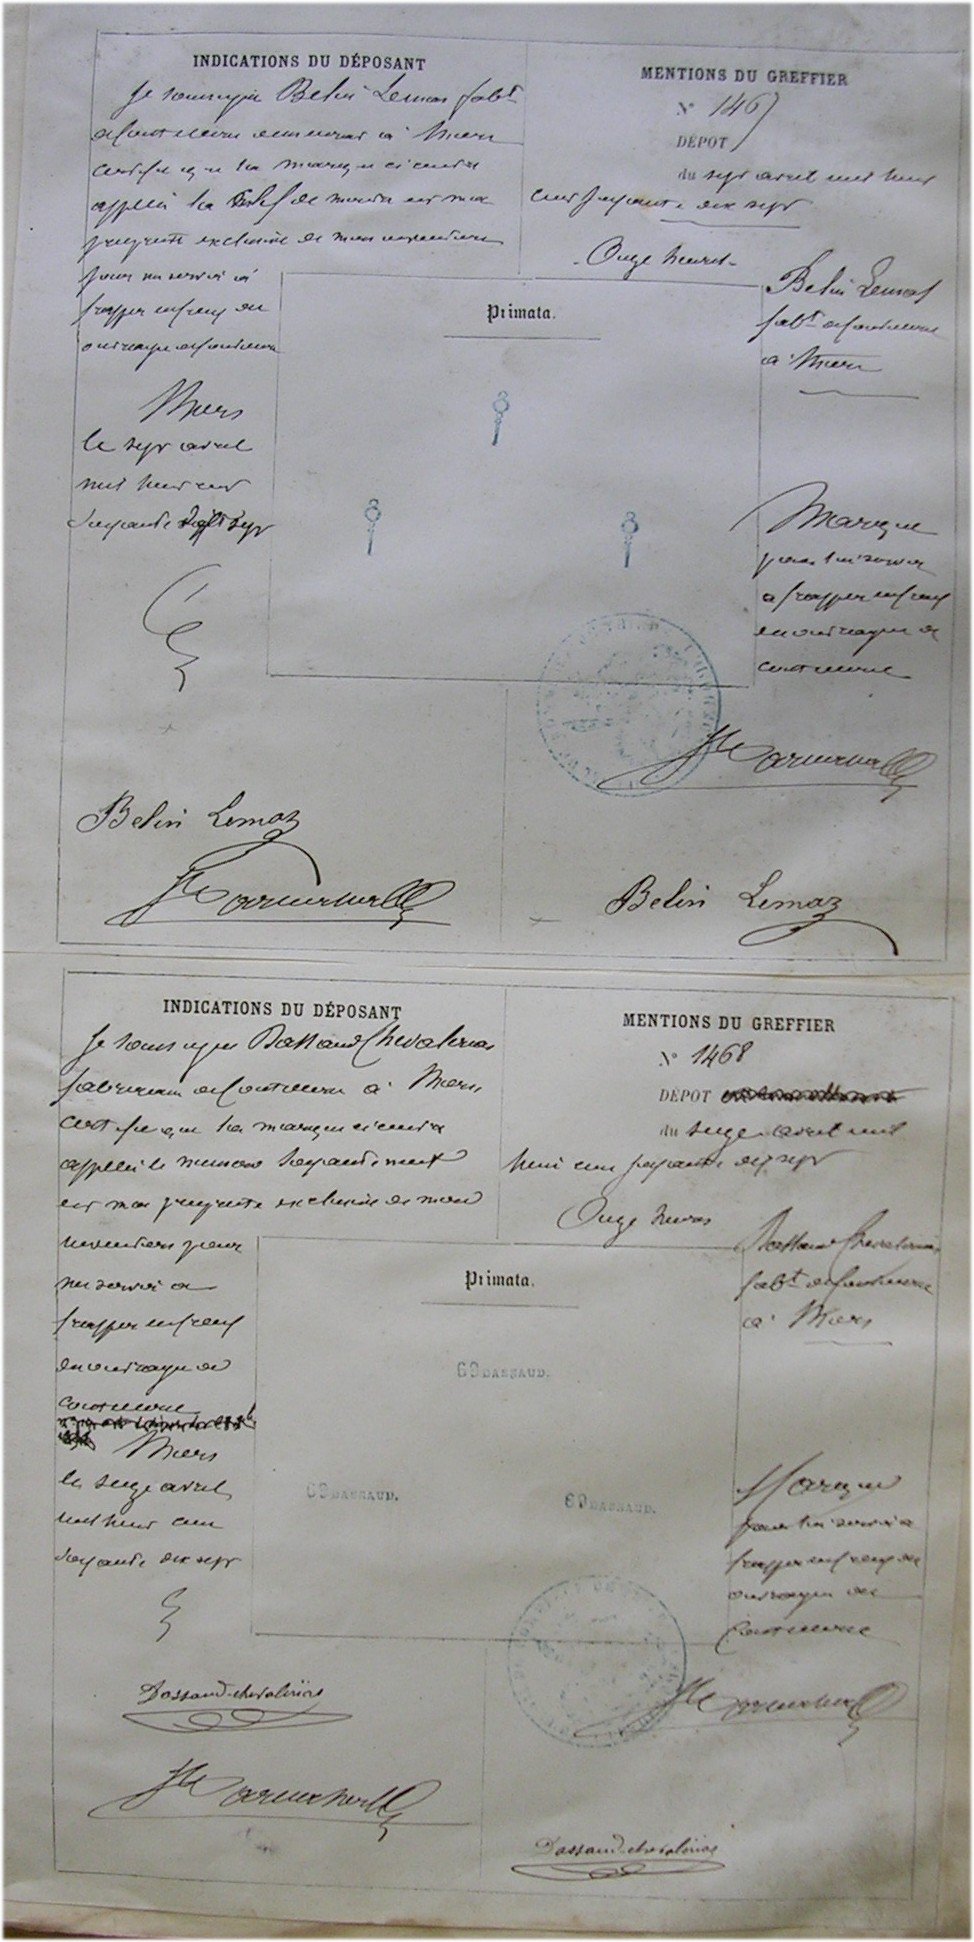 INDICATIONS DU DÉPOSANT
Je soussigné Belin Lemas fabt
de coutellerie demeurant à Thiers
certifie que la marque ci contre
appelée la Clef de montre est ma
propriété exclusive de mon invention
pour me servir à
frapper enfreuf du
ouvrage de coutellerie
Thiers
le sept avril
mil huit cent
soixante dix sept
Belin Lemaz
MENTIONS DU GREFFIER
N° 1467
DÉPOT
du sept avril mil huit
cent soixante dix sept
Onze heures
Belin Lemas
fabt de coutellerie
à Thiers
Primata.
Marque
pour lui servir
a frapper
ouvrages de
coutellerie
Belin Lemaz
INDICATIONS DU DÉPOSANT
Je soussigné Dassaud Chevalerias
fabricant de coutellerie à Thiers
certifie que la marque ci contre
appelée le numero soixante neuf
est ma propriété exclusive de mon
invention pour
me servir a
frapper
ouvrage de
coutellerie
Thiers
le seize avril
mil huit cent
soixante dix sept
Dossaud-chevalérias
MENTIONS DU GREFFIER
N° 1468
DÉPOT
du seize avril mil
huit cent soixante dix sept
Onze heures
Dassaud Chevalerias
fabt de coutellerie
à Thiers
Primata.
69 DASSAUD.
69 DASSAUD.
69 DASSAUD.
Marque
pour lui servir a
frapper
ouvrages de
coutellerie
Dossaud-chevalérias